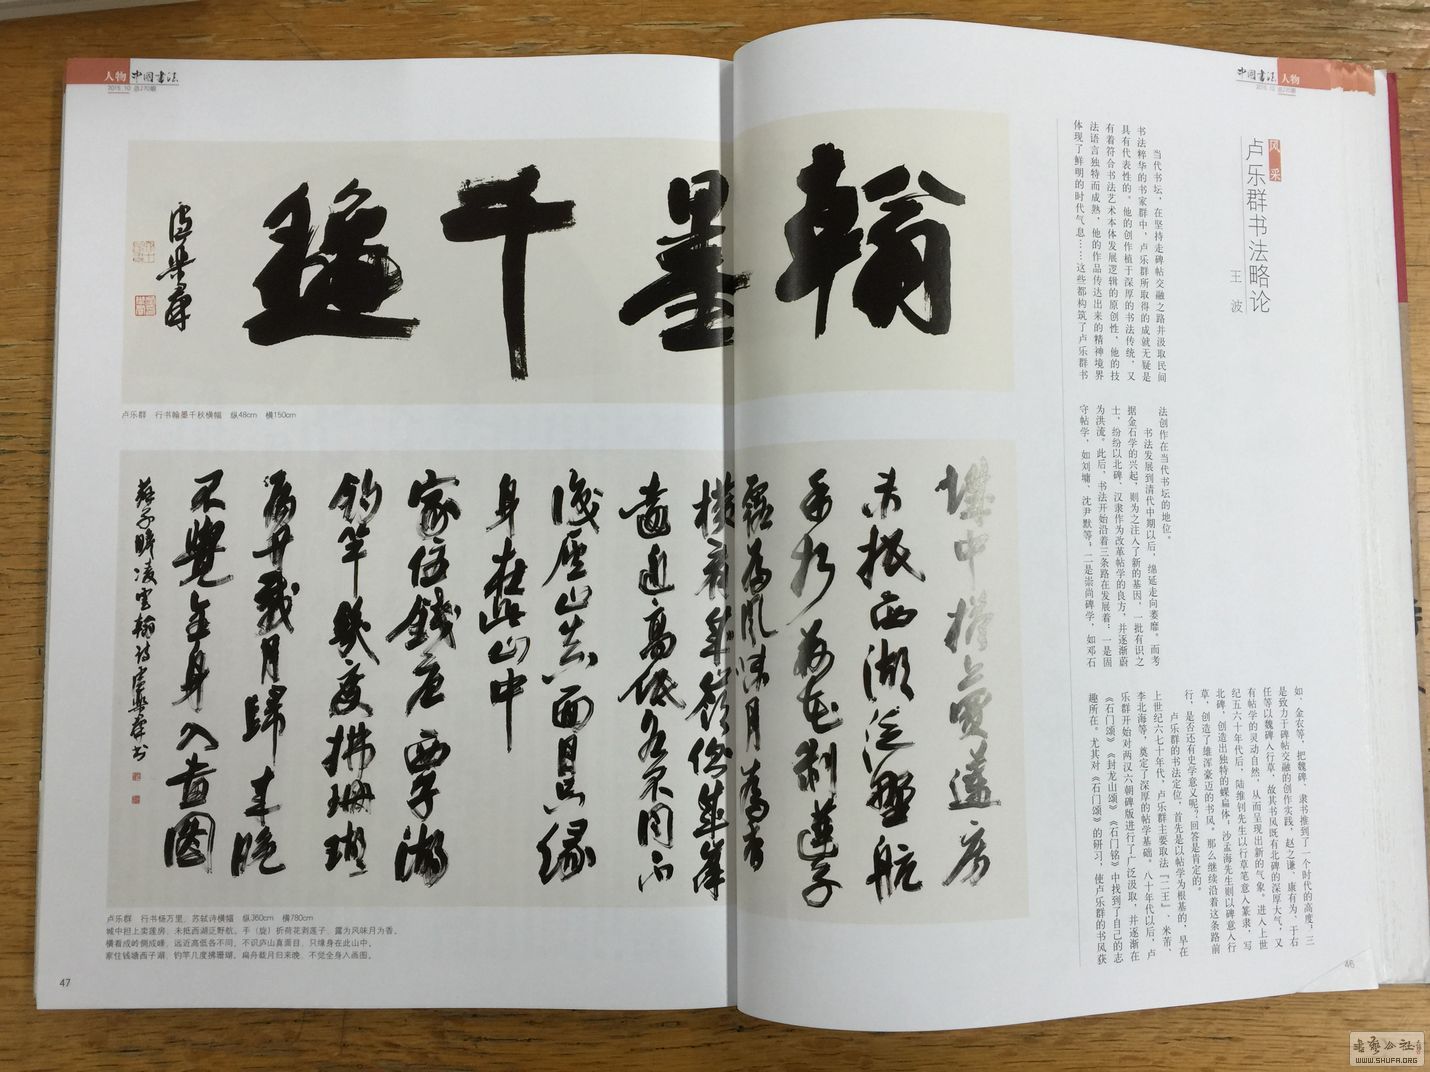 中国书法 人物
2015.10 总270期
风采
卢乐群书法略论
王 波
当代书坛，在坚持走碑帖交融之路并汲取民间
书法粹华的书家群中，卢乐群所取得的成就无疑是
具有代表性的。他的创作植于深厚的书法传统，又
有着符合书法艺术本体发展逻辑的原创性，他的技
法语言独特而成熟，他的作品传达出来的精神境界
体现了鲜明的时代气息……这些都构筑了卢乐群书
法创作在当代书坛的地位。
书法发展到清代中期以后，绵延走向萎靡。而考
据金石学的兴起，则为之注入了新的基因，一批有识之
士，纷纷以北碑、汉隶作为改革帖学的良方，并逐渐蔚
为洪流。此后，书法开始沿着三条路在发展着：一是固
守帖学，如刘墉、沈尹默等；二是崇尚碑学，如邓石
如、金农等，把魏碑、隶书推到了一个时代的高度；三
是致力于碑帖交融的创作实践，赵之谦、康有为、于右
任等以魏碑入行草，故其书风既有北碑的深厚大气，又
有帖学的灵动自然，从而呈现出新的气象。进入上世
纪五六十年代后，陆维钊先生以行草笔意入篆隶，写
北碑，创造出独特的蜾扁体，沙孟海先生则以碑意入行
草，创造了雄浑豪迈的书风。那么继续沿着这条路前
行，是否还有史学意义呢？回答是肯定的。
卢乐群的书法定位，首先是以帖学为根基的，早在
上世纪六七十年代，卢乐群主要取法『二王』、米芾、
李北海等，奠定了深厚的帖学基础。八十年代以后，卢
乐群开始对两汉六朝碑版进行了广泛汲取，并逐渐在
《石门颂》《封龙山颂》《石门铭》中找到了自己的志
趣所在。尤其对《石门颂》的研习，使卢乐群的书风获
46
人物 中国书法
2015.10 总270期
翰墨千秋
卢乐群
卢乐群 行书翰墨千秋横幅 纵48cm 横150cm
城中担上卖莲房
未抵西湖泛野航
手折荷花剥莲子
露为风味月为香
横看成岭侧成峰
远近高低各不同不
识庐山真面目只缘
身在此山中
家住钱唐西子湖
钓竿几度拂珊瑚
扁舟载月归来晚
不觉全身入画图
卢乐群 行书杨万里、苏轼诗横幅 纵360cm 横780cm
城中担上卖莲房，未抵西湖泛野航。手（旋）折荷花剥莲子，露为风味月为香。
横看成岭侧成峰，远近高低各不同。不识庐山真面目，只缘身在此山中。
家住钱塘西子湖，钓竿几度拂珊瑚。扁舟载月归来晚，不觉全身入画图。
47
WWW.SHUFA.ORG